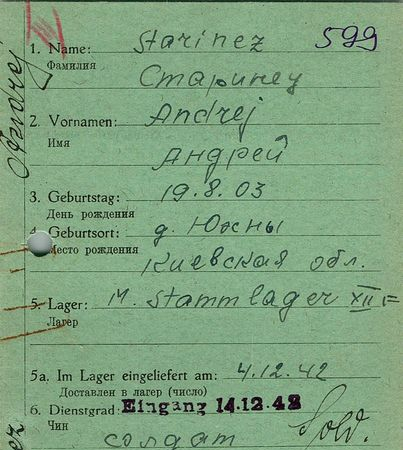 599
1. Name: Starinez
Фамилия
Старинец
2. Vornamen: Andrej
Имя
Андрей
3. Geburtstag: 19.8.03
День рождения
4. Geburtsort: д. Южны
Место рождения
Киевская обл.
5. Lager: M. Stammlager XII F
Лагер
5a. Im Lager eingeliefert am: 4.12.42
Доставлен в лагер (число)
6. Dienstgrad: Eingang 14.12.42
Чин
солдат Sold.